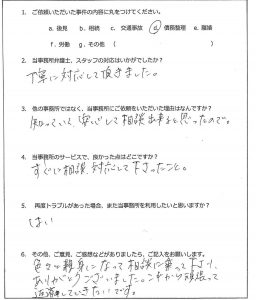 1. ご依頼いただいた事件の内容に丸をつけてください。
a. 後見 b. 相続 c. 交通事故 d. 債務整理 e. 離婚
f. 労働 g. その他（ ）
2. 当事務所弁護士、スタッフの対応はいかがでしたか？
丁寧に対応して頂きました。
3. 他の事務所ではなく、当事務所にご依頼をいただいた理由はなんですか？
知っていて安心して相談出来ると思ったので。
4. 当事務所のサービスで、良かった点はどこですか？
すぐに相談、対応して下さったこと。
5. 再度トラブルがあった場合、また当事務所を利用したいと思いますか？
はい
6. その他、ご意見、ご感想などがありましたら、ご記入をお願いします。
色々と親身になって相談に乗って下さり、
ありがとうございました。これから頑張って
返済していきたいです。